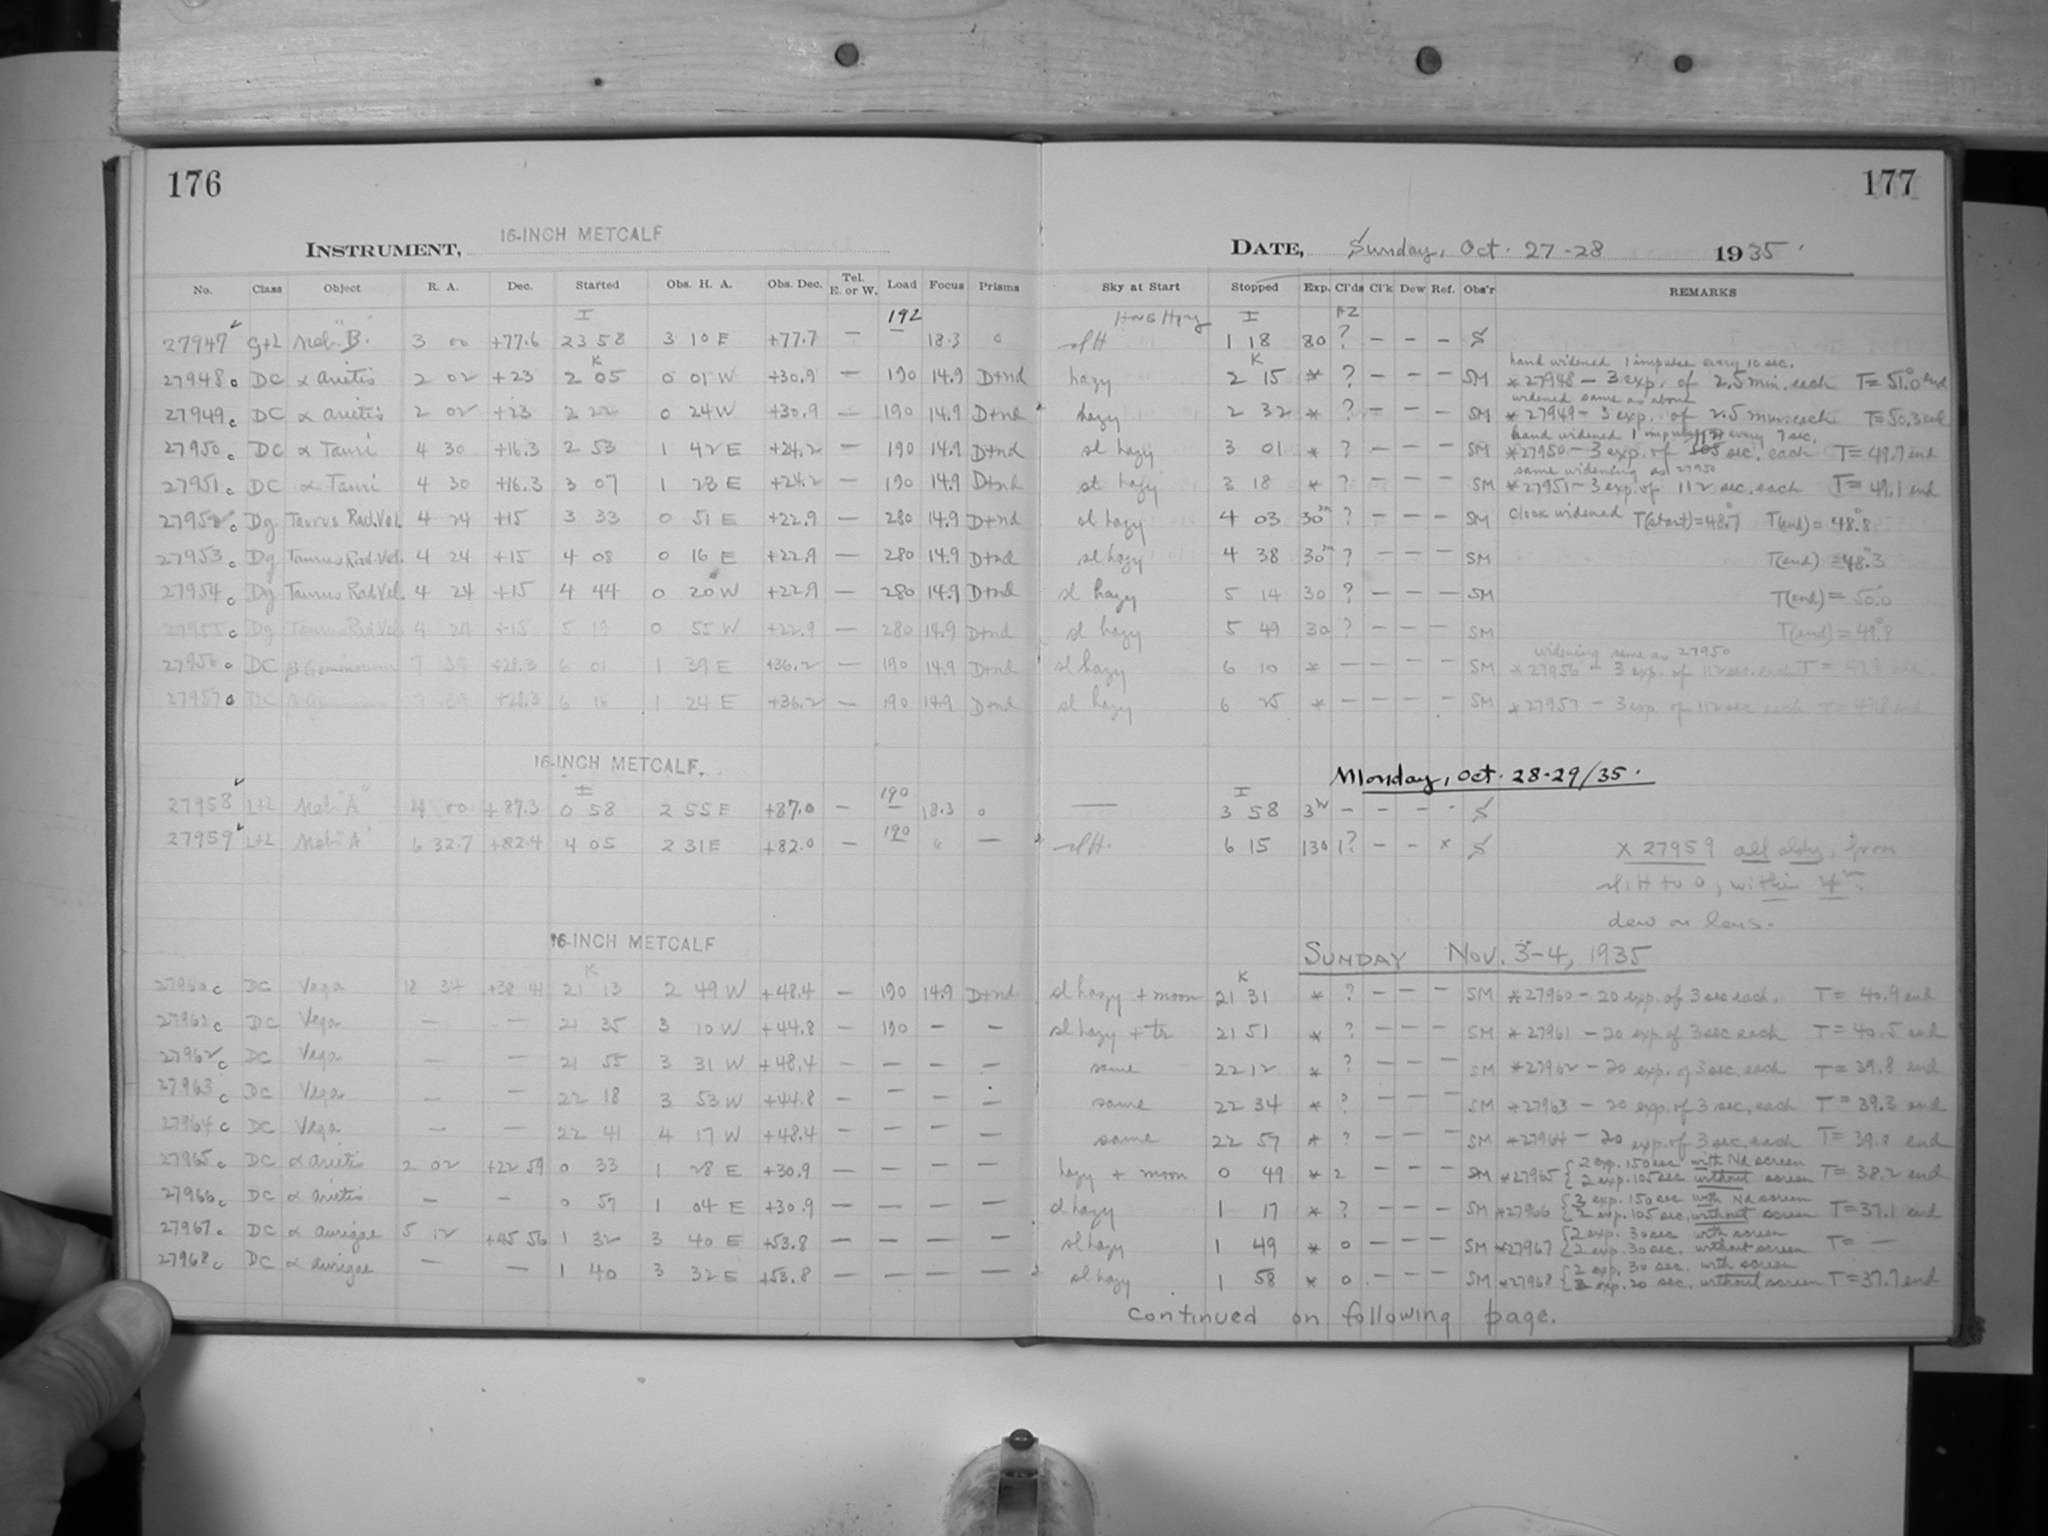 176
177
INSTRUMENT, 16-INCH METCALF
DATE, Sunday, Oct. 27-28 1935.
No. Class Object R. A. Dec. Started Obs. H. A. Obs. Dec. Tel. E. or W. Load Focus Prisms Sky at Start Stopped Exp. Cl'ds Cl'k Dew Ref. Obs'r REMARKS
27947 Neb. "B." 3 00 +77.6 23 58 3 10 E +77.7 — 192 18.3 0 slH 1 18 80 ? — — — S
hand widened 1 impulse every 10 sec.
27948 c DC α arietis 2 02 +23 2 05 0 01 W +30.9 — 190 14.9 D+nd hazy 2 15 * ? — — — SM *27948 — 3 exp. of 2.5 min. each T= 51.0 end
widened same as above
27949 c DC α arietis 2 02 +23 2 22 0 24 W +30.9 — 190 14.9 D+nd hazy 2 32 * ? — — — SM *27949 — 3 exp. of 2.5 min. each T=50.3 end
hand widened 1 impulse every 7 sec.
27950 c DC α Tauri 4 30 +16.3 2 53 1 42 E +24.2 — 190 14.9 D+nd sl hazy 3 01 * ? — — — SM *27950 — 3 exp. of sec. each T= 49.7 end
same widening as 27950
27951 c DC α Tauri 4 30 +16.3 3 07 1 28 E +24.2 — 190 14.9 D+nd sl hazy 3 18 * ? — — — SM *27951 — 3 exp. of 112 sec. each T= 49.1 end
27952 c Dg Taurus Rad. Vel. 4 24 +15 3 33 0 51 E +22.9 — 280 14.9 D+nd sl hazy 4 03 30m ? — — — SM clock widened T(start)=48.7 T(end)=48.8
27953 c Dg Taurus Rad. Vel. 4 24 +15 4 08 0 16 E +22.9 — 280 14.9 D+nd sl hazy 4 38 30m ? — — — SM T(end)=48.3
27954 c Dg Taurus Rad. Vel. 4 24 +15 4 44 0 20 W +22.9 — 280 14.9 D+nd sl hazy 5 14 30 ? — — — SM T(end)= 50.0
27955 c Dg Taurus Rad. Vel. 4 24 +15 5 19 0 55 W +22.9 — 280 14.9 D+nd sl hazy 5 49 30 ? — — — SM T(end)= 49.8
widening same as 27950
27956 c DC β Geminorum 7 39 +28.3 6 01 1 39 E +36.2 — 190 14.9 D+nd sl hazy 6 10 * — — — — SM *27956 — 3 exp. of 112 sec. each T= 49.9 end
27957 c DC β Geminorum 7 39 +28.3 6 16 1 24 E +36.2 — 190 14.9 D+nd sl hazy 6 25 * — — — — SM *27957 — 3 exp. of 112 sec each T= 49.8 end
16-INCH METCALF.
Monday, Oct. 28-29/35.
27958 L+L Neb. "A" 00 +87.3 0 58 2 55 E +87.0 — 190 18.3 0 — 3 58 3h — — — - S
27959 L+L Neb. "A" 6 32.7 +82.4 4 05 2 31 E +82.0 — 190 " — slH. 6 15 130 1? — — x S X 27959 all cldy, from
sl. H to 0, within
dew on lens.
16-INCH METCALF
SUNDAY NOV. 3-4, 1935
27960 c DC Vega 18 34 +38 41 21 13 2 49 W +48.4 — 190 14.9 D+nd sl hazy + moon 21 31 * ? — — — SM *27960 — 20 exp. of 3 sec each. T= 40.9 end
27961 c DC Vega — — 21 35 3 10 W +44.8 — 190 — — sl hazy + tr 21 51 * ? — — — SM *27961 — 20 exp. of 3 sec each T= 40.5 end
27962 c DC Vega — — 21 55 3 31 W +48.4 — — — — same 22 12 * ? — — — SM *27962 — 20 exp. of 3 sec. each T= 39.8 end
27963 c DC Vega — — 22 18 3 53 W +44.8 — — — — same 22 34 * ? — — — SM *27963 — 20 exp. of 3 sec. each T= 39.3 end
27964 c DC Vega — — 22 41 4 17 W +48.4 — — — — same 22 57 * ? — — — SM *27964 — 20 exp. of 3 sec. each T= end
27965 c DC α arietis 2 02 +22 59 0 33 1 28 E +30.9 — — — — hazy + moon 0 49 * 2 — — — SM *27965 { 2 exp. 150 sec with Nd screen
2 exp. 105 sec without screen T= 38.2 end
27966 c DC α arietis — — 0 57 1 04 E +30.9 — — — — sl hazy 1 17 * ? — — — SM *27966 { exp. 150 sec with Nd screen
2 exp. 105 sec. without screen T= 37.1 end
27967 c DC α aurigae 5 12 +45 56 1 32 3 40 E +53.8 — — — — sl hazy 1 49 * 0 — — — SM *27967 { 2 exp. 30 sec. with screen
2 exp. 30 sec. without screen T= —
27968 c DC α aurigae — — 1 40 3 32 E +53.8 — — — — sl hazy 1 58 * 0 — — — SM *27968 { 2 exp. 30 sec. with screen
exp. 20 sec. without screen T= 37.7 end
continued on following page.